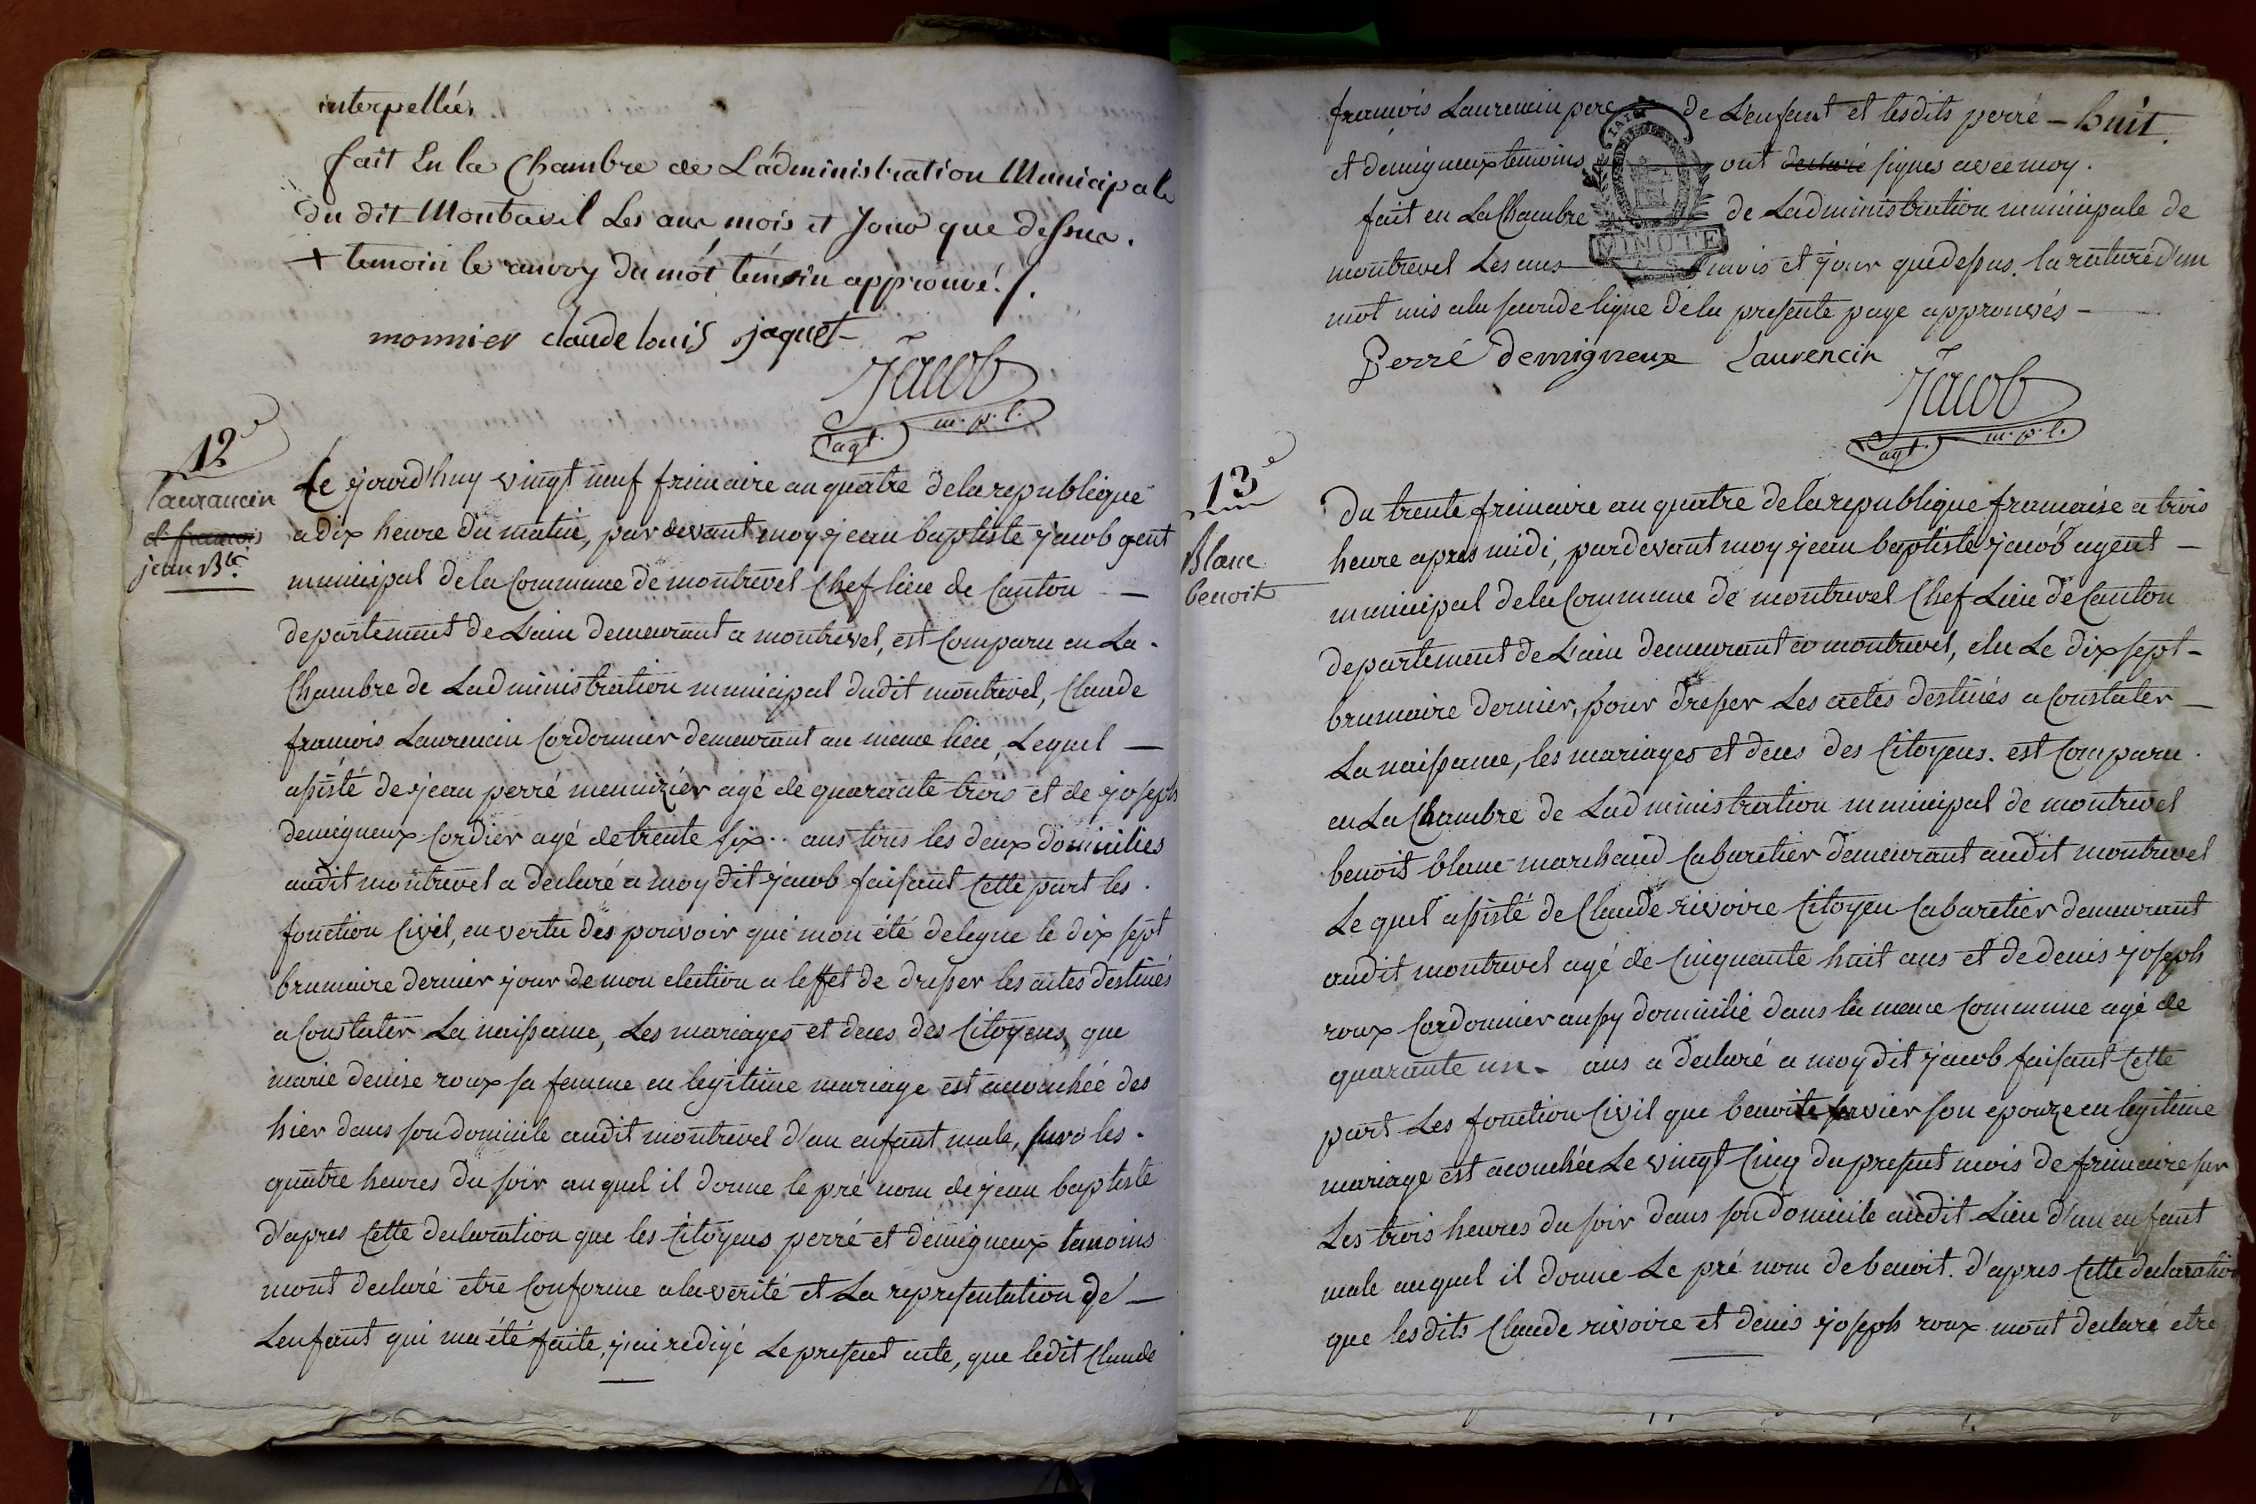 interpellée,
fait En la Chambre de L'administration Municipale
du dit Montravel Les ans mois et Jour que dessus.
+ temoin le renvoy du mót témoin approuvé ./.
monnier claude louis jaquet
Jacob
agt. m. p. l.
12e
Laurancin
et francois
jean Bte.
Le jourd'huy vingt neuf frimaire an quatre de la republique
a dix heure du matin, par devant moy jean baptiste jacob agent
municipal de la Commune de montrevel Chef lieu de Canton —
departement de L'ain demeurant a montrevel, est Comparu en La.
Chambre de Ladministration municipal dudit montrevel, Claude
francois Laurencin Cordonnier demeurant au meme lieu, Lequel —
assisté de jean perré menuizier agé de quarante trois et de joseph
demigneux Cordier agé de trente six .. ans tous les deux domiciliés
audit montrevel a declaré a moy dit jacob faisant Cette part les .
fonction Civil, en vertu des pouvoir qui mon été delegue le dix sept
brumaire dernier jour de mon election a leffet de dresser les actes destinés
a Constater La naissance, Les mariages et deces des Citoyens, que
marie denise roux sa femme en legitime mariage est acouchée des
hier dans son domicile audit montrevel d'un enfant male, sur les .
quatre heures du soir auquel il donne le pré nom de jean baptiste
d'apres Cette declaration que les Citoyens perré et demigneux temoins
mont declaré etre Conforme a la verité et La representation de —
Lenfant qui ma été faite, j'ai redigé Le present acte, que ledit Claude
francois Laurencin pere de L'enfant et lesdits perré — huit.
et demigneux temoins ont declaré signes avec moy.
fait en La Chambre de Ladministration municipale de
MINUTE
montrevel Les ans mois et jour que dessus. la rature d'un
mot mis a la seconde ligne de la presente page approuvés —
Perré demigneux Laurencin
Jacob
agt. m. p. l.
13e
Blanc
benoit
Du trente frimaire an quatre de la republique francaise a trois
heure apres midi, pardevant moy jean baptiste jacob agent —
municipal de la Commune de montrevel Chef Lieu de Canton
departement de L'ain demeurant a montrevel, elu Le dix sept —
brumaire dernier, pour dresser Les actes destinés a Constater —
La naissance, les mariages et deces des Citoyens. est Comparu .
en La Chambre de Ladministration municipal de montrevel
benoit blanc marchand Cabaretier demeurant audit montrevel
Le quel assisté de Claude rivoire Citoyen Cabaretier demeurant
audit montrevel agé de Cinquante huit ans et de denis joseph
roux Cordonnier aussy domicilié dans la meme Commune agé de
quarante un - ans a declaré a moy dit jacob faisant Cette
part Les fonction Civil que benoite son epouze en legitime
mariage est acouchée Le vingt Cinq du present mois de frimaire sur
Les trois heures du soir dans son domicile audit Lieu d'un enfant
male auquel il donne Le pré nom de benoit. d'apres Cette declaration
que lesdits Claude rivoire et denis joseph roux mont declare etre